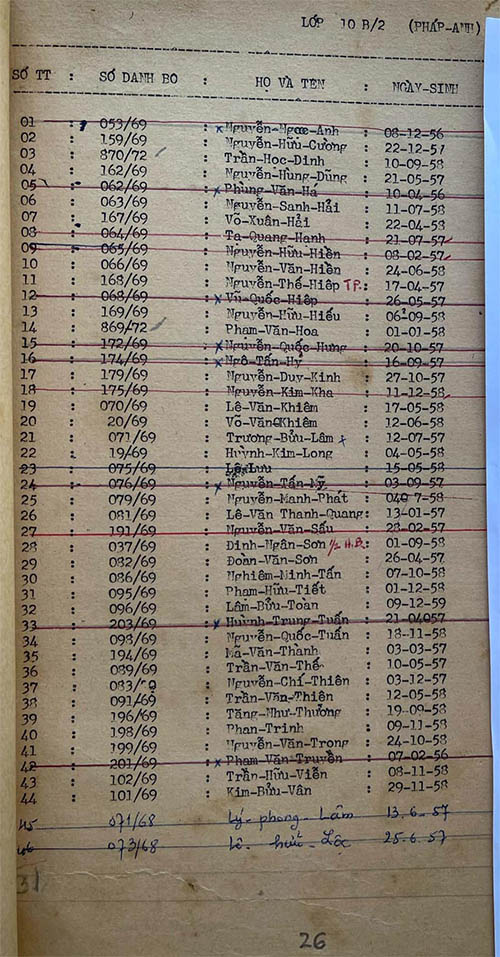 LỚP 10 B/2 (PHÁP-ANH)
SỐ TT : SỐ DANH BO : HỌ VÀ TÊN : NGAY-SINH
01 : 053/69 : x Nguyễn-Ngọc-Anh : 08-12-56
02 : 159/69 : Nguyễn-Hữu-Cương : 22-12-57
03 : 870/72 : Trần-Hoc-Dinh : 10-09-58
04 : 162/69 : Nguyễn-Hung-Dũng : 21-05-57
05 : 062/69 : x Phùng-Văn-Há : 10-04-56
06 : 063/69 : Nguyễn-Sanh-Hải : 11-07-58
07 : 167/69 : Võ-Xuân-Hải : 22-04-58
08 : 064/69 : Ta-Quang-Hạnh : 21-07-57
09 : 065/69 : Nguyễn-Hữu-Hiền : 08-02-57
10 : 066/69 : Nguyễn-Văn-Hiền : 24-06-58
11 : 168/69 : Nguyễn-Thế-Hiệp T.P. : 17-04-57
12 : 068/69 : x Vũ-Quốc-Hiệp : 26-05-57
13 : 169/69 : Nguyễn-Hữu-Hiếu : 06-09-58
14 : 869/72 : Phạm-Văn-Hoa : 01-01-58
15 : 172/69 : x Nguyễn-Quốc-Hưng : 20-10-57
16 : 174/69 : x Ngô-Tấn-Hỷ : 16-09-57
17 : 179/69 : Nguyễn-Duy-Kinh : 27-10-57
18 : 175/69 : Nguyễn-Kim-Kha : 11-12-58
19 : 070/69 : Lê-Văn-Khiêm : 17-05-58
20 : 20/69 : Võ-Văn-Khiêm : 12-06-58
21 : 071/69 : Trương-Bửu-Lâm x : 12-07-57
22 : 19/69 : Huỳnh-Kim-Long : 04-05-58
23 : 075/69 : Lê-Lưu : 15-05-58
24 : 076/69 : x Nguyễn-Tấn-Mỹ : 03-09-57
25 : 079/69 : Nguyễn-Mạnh-Phát : 7-58
26 : 081/69 : Lê-Văn Thanh-Quang : 13-01-57
27 : 191/69 : Nguyễn-Văn-Sấu : 28-02-57
28 : 037/69 : Đinh-Ngân-Sơn 1/2 H.B. : 01-09-58
29 : 082/69 : Đoàn-Văn-Sơn : 26-04-57
30 : 086/69 : Nghiêm-Minh-Tấn : 07-10-58
31 : 095/69 : Phạm-Hữu-Tiết : 01-12-58
32 : 096/69 : Lâm-Bửu-Toàn : 09-12-59
33 : 203/69 : x Huỳnh-Trung-Tuấn : 21-04057
34 : 098/69 : Nguyễn-Quốc-Tuấn : 18-11-58
35 : 194/69 : Mã-Văn-Thanh : 03-03-57
36 : 089/69 : Trần-Văn-Thế : 10-05-57
37 : Nguyễn-Chí-Thiên : 03-12-57
38 : 091/69 : Trần-Văn-Thiên : 12-05-58
39 : 196/69 : Tăng-Như-Thưởng : 19-09-58
40 : 198/69 : Phan-Trinh : 09-11-58
41 : 199/69 : Nguyễn-Văn-Trong : 24-10-58
42 : 201/69 : x Phạm-Văn-Truyền : 07-02-56
43 : 102/69 : Trần-Hữu-Viễn : 08-11-58
44 : 101/69 : Kim-Bửu-Vân : 29-11-58
45 071/68 Lý-phong-Lâm 13.6.57
46 073/68 Lê-hữu-Lộc 25.6.57
31
26